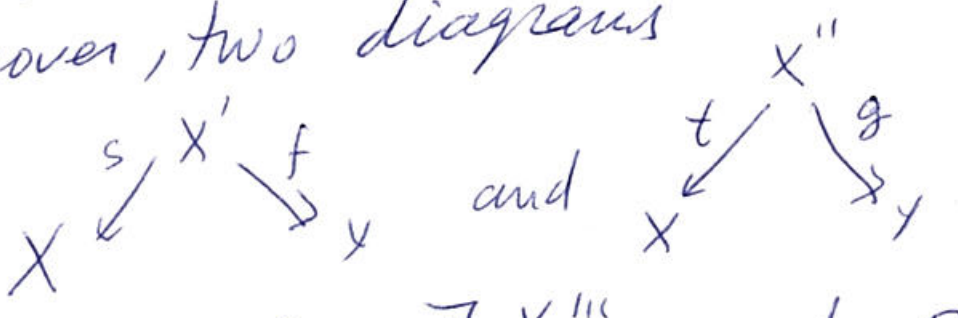 over, two diagrams
X''
s X' f t g
and
X Y X Y
∃ X'''